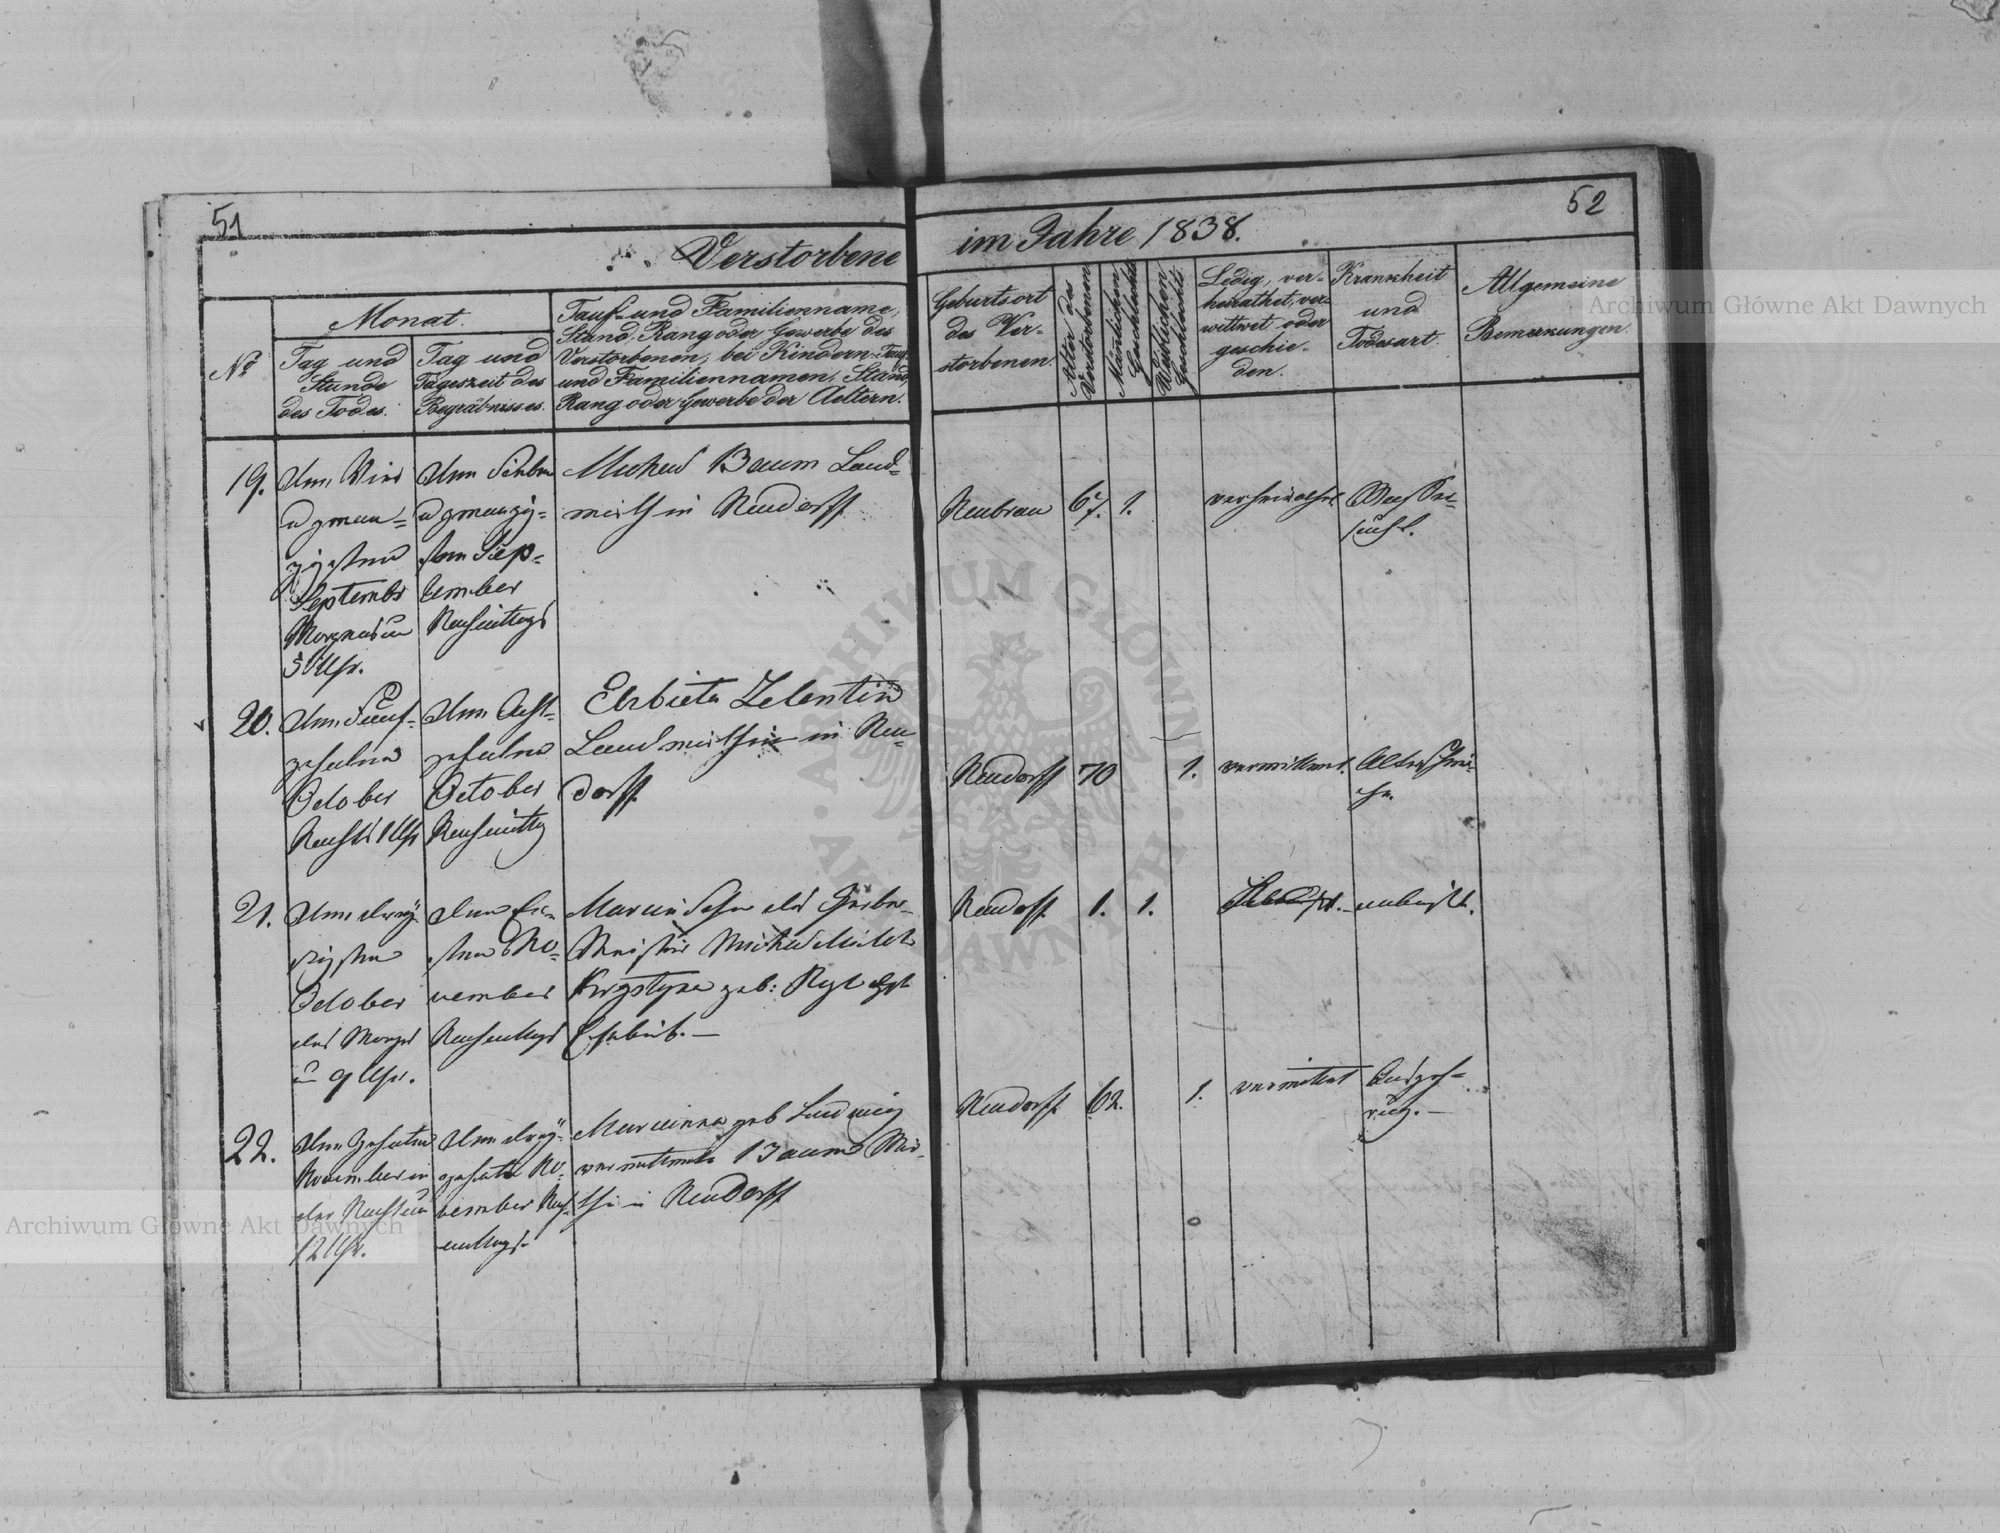 51
Verstorbene
im Jahre 1838.
52
Nº
Monat.
Tag und
Stunde
des Todes.
Tag und
Tageszeit des
Begräbnisses.
Tauf- und Familienname,
Stand, Rang oder Gewerbe des
Verstorbenen, bei Kindern Tauf-
und Familiennamen, Stand,
Rang oder Gewerbe der Aeltern.
Geburtsort
des Ver-
storbenen.
Alter des
Verstorbenen
Männlichen
Geschlechts
Weiblichen
Geschlechts
Ledig, ver-
heirathet, ver-
wittwet oder
geschie-
den.
Krankheit
und
Todesart.
Allgemeine
Bemerkungen.
19.
Den Vier
u zwan-
zigsten
September
Morgens um
5 Uhr.
Den Sieben
u zwanzig-
sten Sep-
tember
Nachmittags
Michael Baum Land-
wirth in Neudorff
Neubrau
67.
1.
verheirathet
Wasser-
sucht.
20.
Den Fünf-
zehnten
October
Nachts 1 Uhr
Den Acht-
zehnten
October
Nachmittag
Elzbieta Zelentin
Landwirthin in Neu-
dorff.
Neudorff
70
1.
verwittwet.
Altersschwä-
che.
21.
Den drey
zigsten
October
des Morgs
um 9 Uhr.
Den Er-
sten No-
vember
Nachmittags
Marcin Sohn des
Meister Michael
Krystyna geb:
Neudorff
1.
1.
unbekt.
22.
Den Zehnten
November in
der Nacht um
12 Uhr.
Den drey-
zehnten No-
vember Nach-
mittags.
Marianna geb Ludwig
verwittwete Baum Wir-
thin in Neudorff
Neudorff
62.
1.
verwittwet
Auszeh-
rung.
ARCHIWUM GŁÓWNE AKT DAWNYCH
Archiwum Główne Akt Dawnych
Archiwum Główne Akt Dawnych